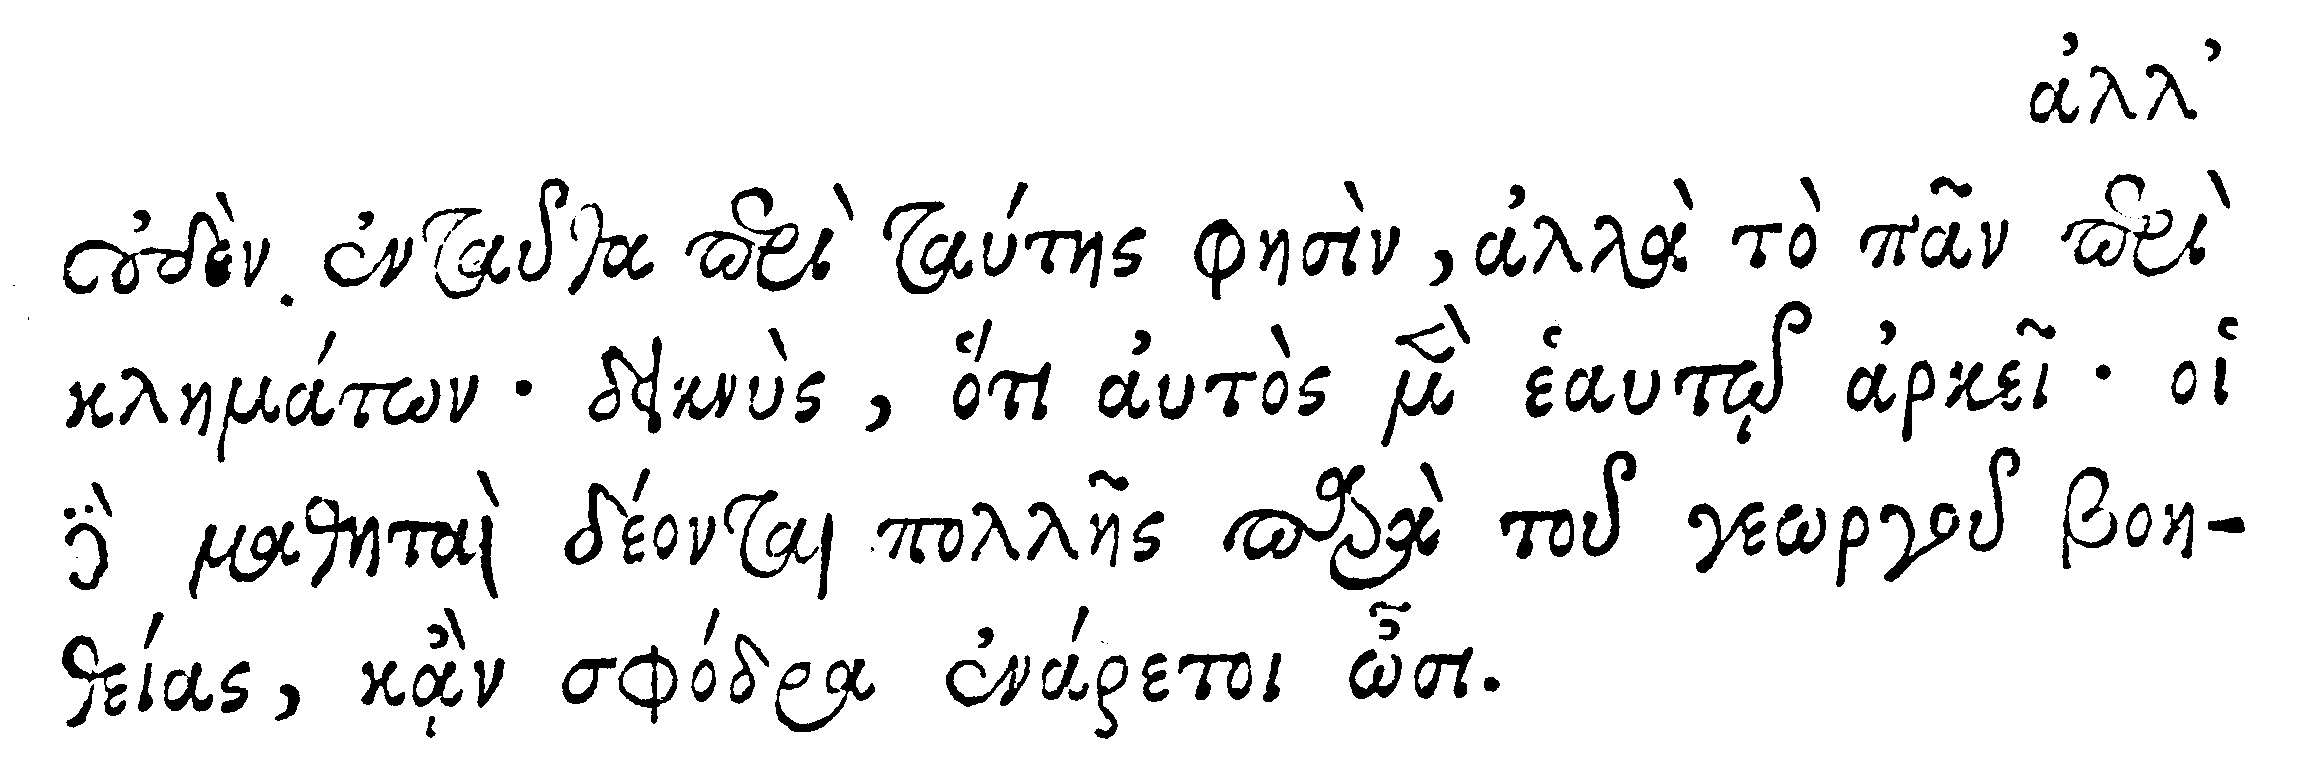 ἀλλ’
οὐδὲν ἐνταῦθα περὶ ταύτης φησὶν, ἀλλὰ τὸ πᾶν περὶ
κλημάτων · δεικνὺς, ὅτι αὐτὸς μὲν ἑαυτῷ ἀρκεῖ · οἱ
δὲ μαθηταὶ δέονται πολλῆς παρὰ τοῦ γεωργοῦ βοη-
θείας, κᾂν σφόδρα ἐνάρετοι ὦσι.